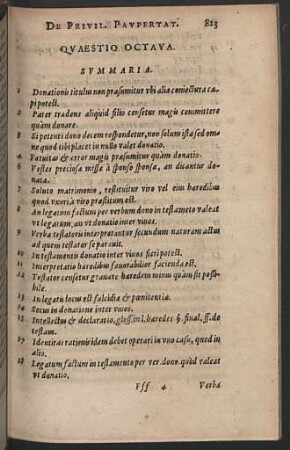 DE PRIVIL. PAVPERTAT. 823
QVAESTIO OCTAVA.
SVMMARIA.
1 Donationis titulus non præsumitur vbi alia coniectura ca-
pi potest.
2 Pater tradens aliquid filio censetur magis committere
quàm donare.
3 Si petenti dono decem respondetur, non solum ista sed om-
ne quod tibi placet in nullo valet donatio.
4 Fatuitas & error magis præsumitur quàm donatio.
6 Vestes preciosæ missæ à sponso sponsæ, an dicantur do-
natæ.
7 Soluto matrimonio, restituitur viro vel eius haredibus
quod vxori à viro præstitum est.
8 An legatum factum per verbum dono in testamẽto valeat
vt legatum, an vt donatio inter viuos.
9 Verba testatoris interpretantur secundum naturam actus
ad quem testator se parauit.
10 In testamentis donatio inter viuos fieri potest.
11 Interpretatio haredibus fauorabilior facienda est.
12 Testator censetur grauare haredem minus quàm sit possi-
bile.
13 In legatum locus est falcidiæ & pœnitentiæ.
14 Secus in donatione inter viuos.
15 Intellectus & declaratio, gloss. in l. haredes §. final. ff. de
testam.
17 Identitas rationis idem debet operari in vno casu, quod in
alio.
18 Legatum factum in testamento per ver. dono. quid valeat
vt donatio.
Fff 4 Verba